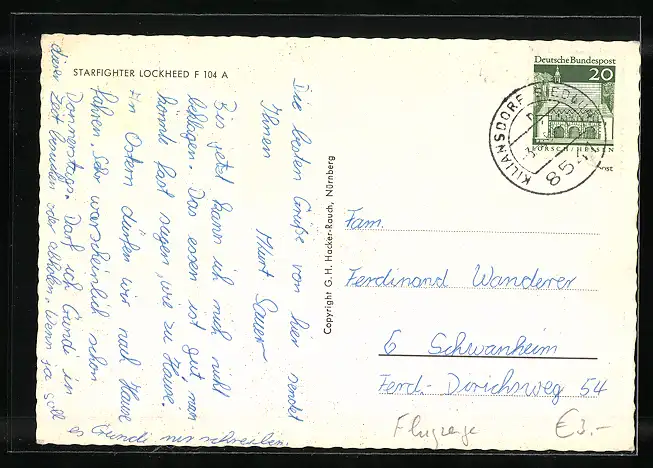 STARFIGHTER LOCKHEED F 104 A
Deutsche Bundespost
20
LORSCH/HESSEN
KILIANSDORF
854
Die besten Grüße von hier sendet
Ihnen Kurt Sauer
Bis jetzt kann ich mich nicht
beklagen. Das essen ist gut, man
könnte fast sagen, wie zu Hause.
An Ostern dürfen wir nach Hause
fahren. Sehr warscheinlich schon
Donnerstags. Darf ich Gundi in
dieser Zeit besuchen oder abholen. Wenn ja soll
es Gundi mir schreiben.
Copyright G. H. Hacker-Rauch, Nürnberg
Fam.
Ferdinand Wanderer
6 Schwanheim
Ferd.- Dirichsweg 54
Flugzeuge
€3.-